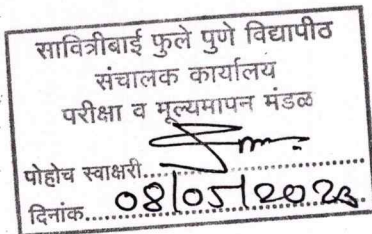 सावित्रीबाई फुले पुणे विद्यापीठ
संचालक कार्यालय
परीक्षा व मूल्यमापन मंडळ
पोहोच स्वाक्षरी..................
दिनांक.....08/05/2023.